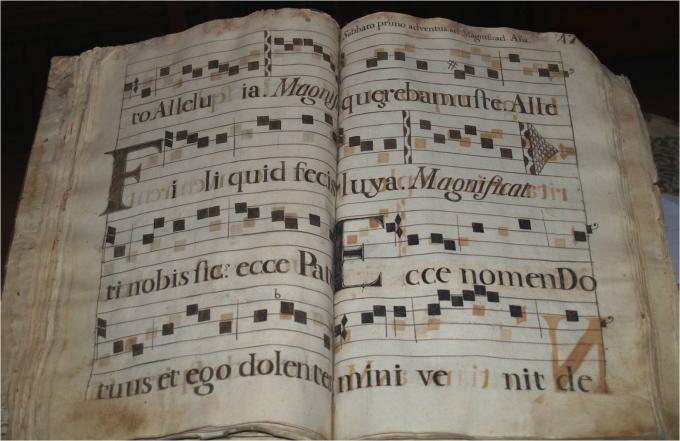 to Allelu ia. Magnif
Fi li quid fecis
ti nobis sic? ecce Pat
tuus et ego dolentes
Sabbato primo adventus ad Magnificad. Aña. 47
querebamus te. Alle
luya. Magnificat
Ecce nomen Do
mini ve nit de